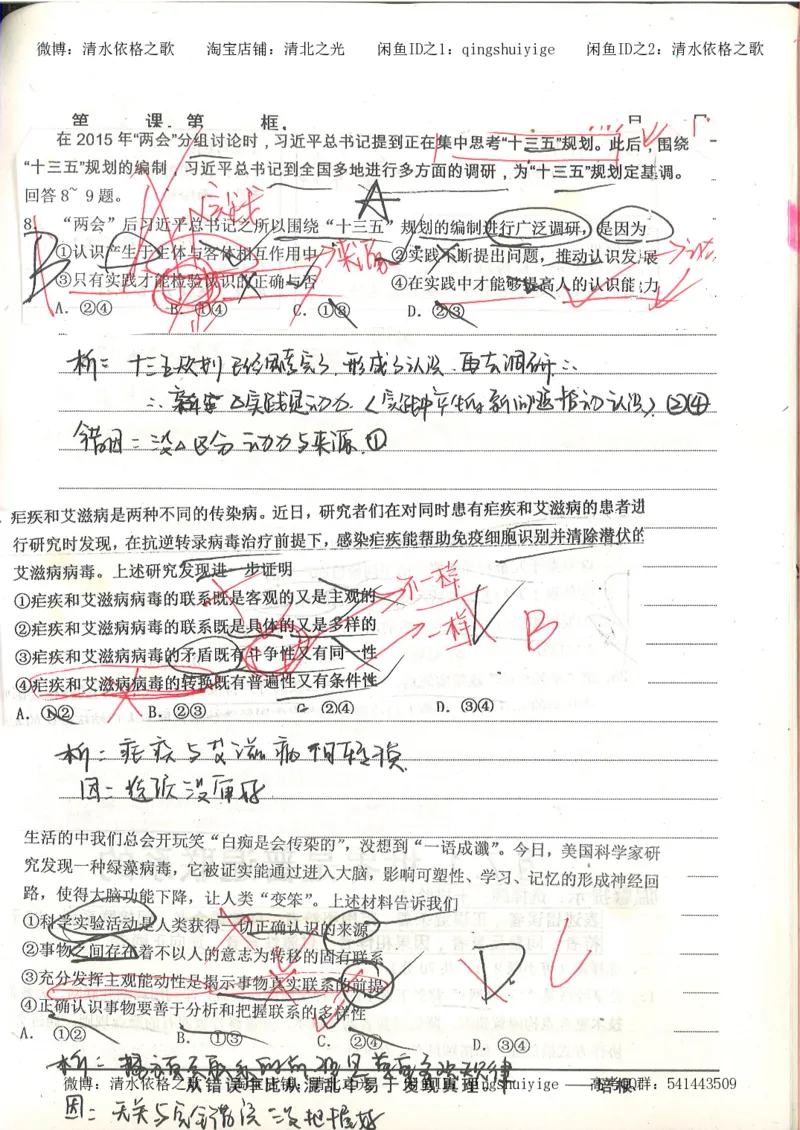 微博：清水依格之歌 淘宝店铺：清北之光 闲鱼ID之1：qingshuiyige 闲鱼ID之2：清水依格之歌
第 课.第 框.
在 2015 年“两会”分组讨论时，习近平总书记提到正在集中思考“十三五”规划。此后，围绕
“十三五”规划的编制，习近平总书记到全国多地进行多方面的调研，为“十三五”规划定基调。
回答 8~ 9 题。
实践
A
8. “两会”后习近平总书记之所以围绕“十三五”规划的编制进行广泛调研，是因为
B
①认识产生于主体与客体相互作用中 ②实践不断提出问题，推动认识发展
来源
③只有实践才能检验认识的正确与否 ④在实践中才能够提高人的认识能力
A. ②④ B. ①④ C. ①③ D. ②③
析：十三五规划已经思考完了，形成了认识，再去调研∴
∴ 实践是动力（实践中产生新问题推动认识）②④
错因：没区分动力与来源.①
疟疾和艾滋病是两种不同的传染病。近日，研究者们在对同时患有疟疾和艾滋病的患者进
行研究时发现，在抗逆转录病毒治疗前提下，感染疟疾能帮助免疫细胞识别并清除潜伏的
艾滋病病毒。上述研究发现进一步证明
不一样
①疟疾和艾滋病病毒的联系既是客观的又是主观的
②疟疾和艾滋病病毒的联系既是具体的又是多样的
一样 B
③疟疾和艾滋病病毒的矛盾既有斗争性又有同一性
④疟疾和艾滋病病毒的转换既有普遍性又有条件性
A. ①② B. ②③ C. ②④ D. ③④
析：疟疾与艾滋病相转换
因：选项没审好
生活的中我们总会开玩笑“白痴是会传染的”，没想到“一语成谶”。今日，美国科学家研
究发现一种绿藻病毒，它被证实能通过进入大脑，影响可塑性、学习、记忆的形成神经回
路，使得大脑功能下降，让人类“变笨”。上述材料告诉我们
①科学实验活动是人类获得一切正确认识的来源
②事物之间存在着不以人的意志为转移的固有联系
③充分发挥主观能动性是揭示事物真实联系的前提
D
④正确认识事物要善于分析和把握联系的多样性
A. ①② B. ①③ C. ②④ D. ③④
微博：清水依格之歌 淘宝店铺：清北之光 闲鱼ID之1：qingshuiyige 高考QQ群：541443509
从错误中比从混乱中易于发现真理。——培根